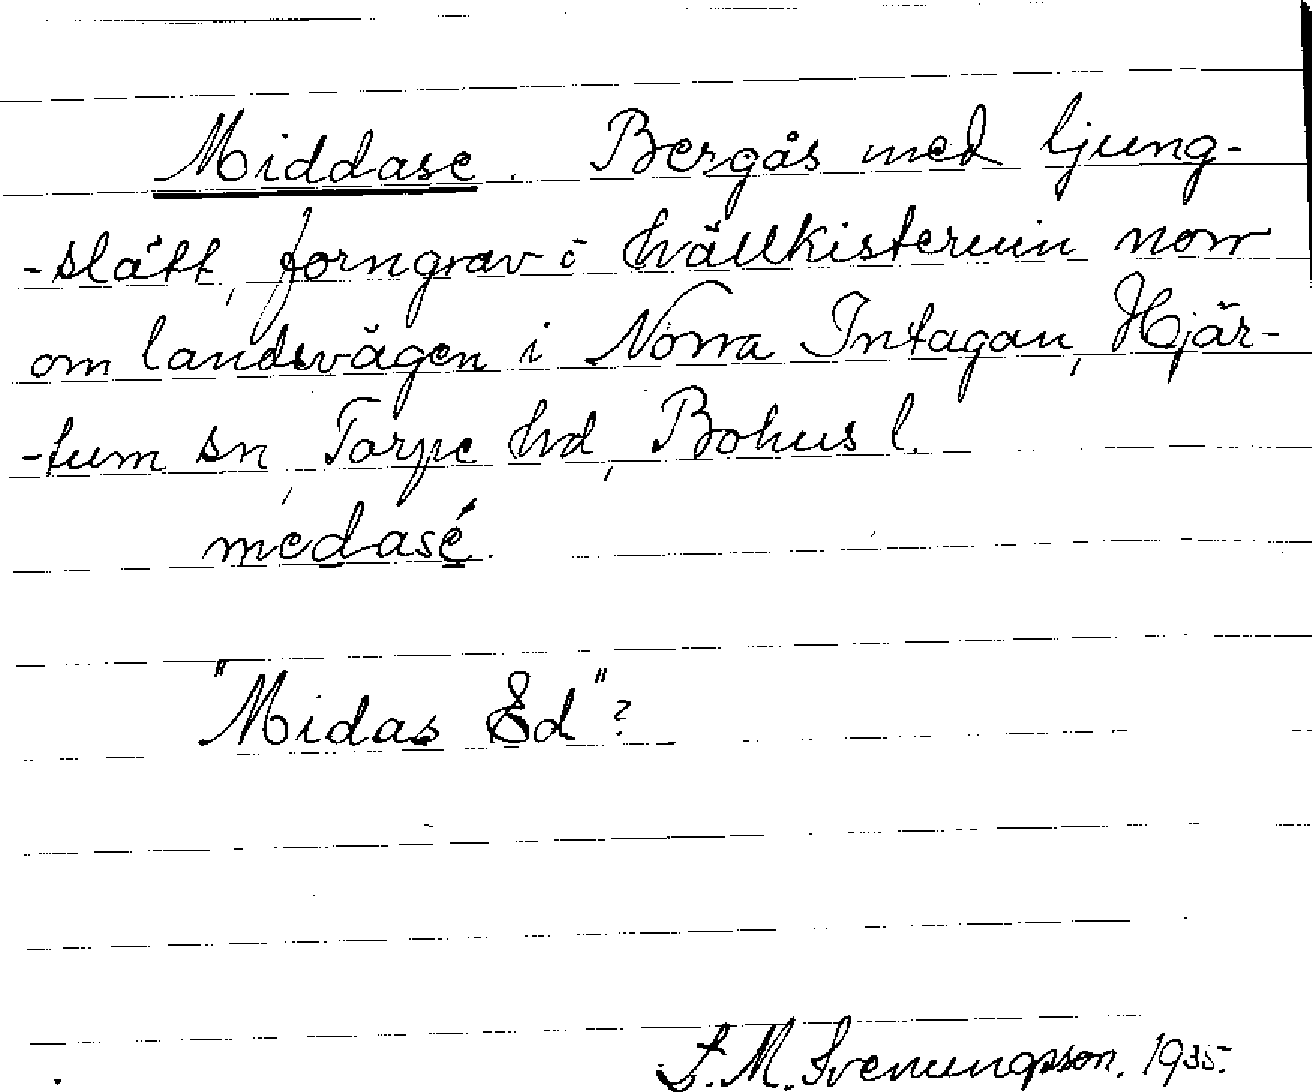 Middase. Bergås med ljung-
-slätt, forngrav o hällkisteruin norr
om landsvägen i Norra Intagan, Hjär-
-tum sn, Torpe hd, Bohus l.
medasé.
"Midas Ed"?
S. M. Svenungsson. 1935.